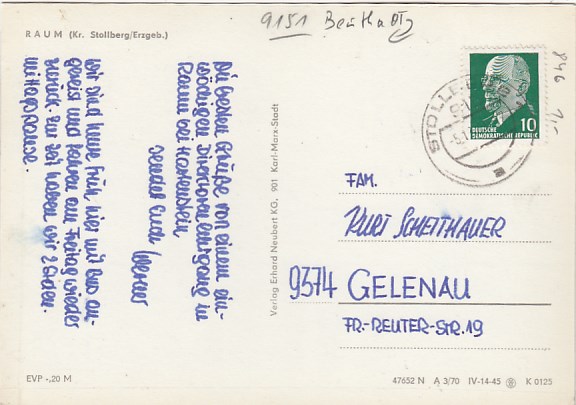 9151
RAUM (Kr. Stollberg/Erzgeb.)
Die besten Grüße von einem ein-
wöchigen Divisionslehrgang in
Raum bei Hartenstein
sendet Euch Werner
Wir sind heute früh hier mit Bus an-
gereist und fahren am Freitag wieder
zurück. Zur Zeit haben wir 2 Stden.
Mittagspause.
Verlag Erhard Neubert KG, 901 Karl-Marx-Stadt
STOLLBERG
10
DEUTSCHE
DEMOKRATISCHE REPUBLIK
846
FAM.
KURT SCHEITHAUER
9374 GELENAU
FR.-REUTER-STR. 19
EVP -,20 M
47652 N A 3/70 IV-14-45 K 0125